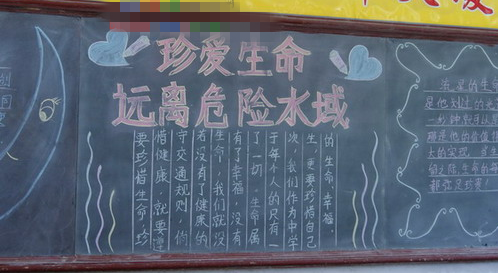 珍爱生命
远离危险水域
要珍惜生命,珍
惜健康,就要遵
守交通规则,你
若没有了健康的
生命,我们就没
有了幸福,没有
了一切,生命属
于每个人的只有一
次,我们作为中学
生,更要珍惜自己
的生命,幸福
流星的生
是他划过的
那是他的价值
大的实现